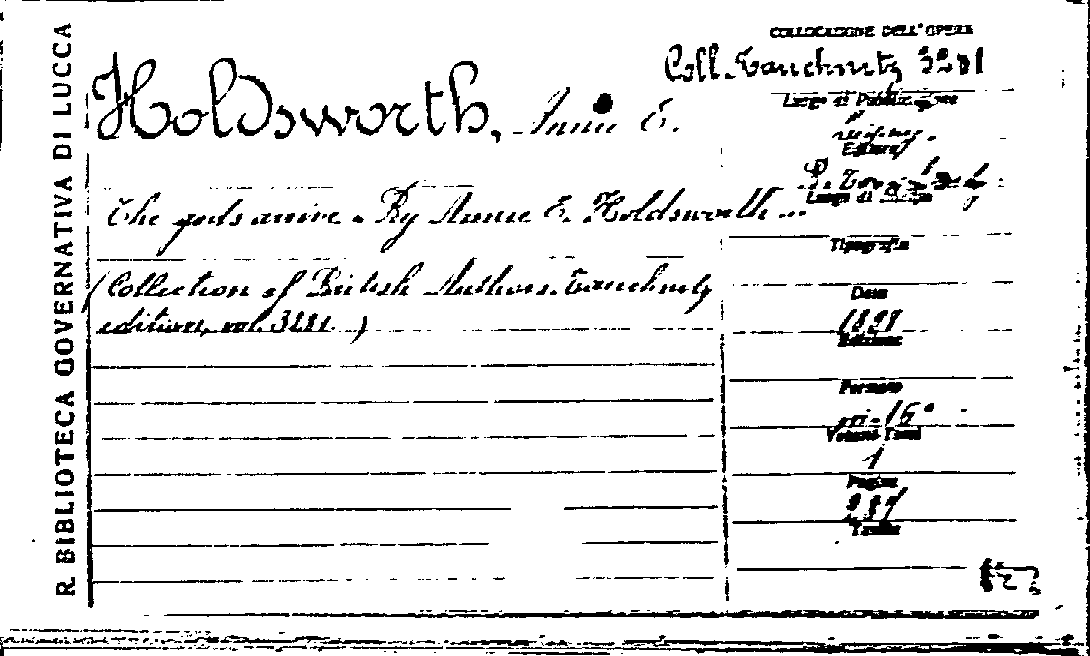 R. BIBLIOTECA GOVERNATIVA DI LUCCA
Holdsworth, Annie E.
The gods arrive. By Annie E. Holdsworth...
(Collection of British Authors. Tauchnitz
edition, vol. 3281.)
COLLOCAZIONE DELL'OPERA
Coll. Tauchnitz 3281
Luogo di Pubblicazione
Editore
B. Tauchnitz
Luogo di Stampa
Tipografia
Data
1898
Edizione
Formato
in-16°
Volumi Tomi
1
Pagine
287
Tavole